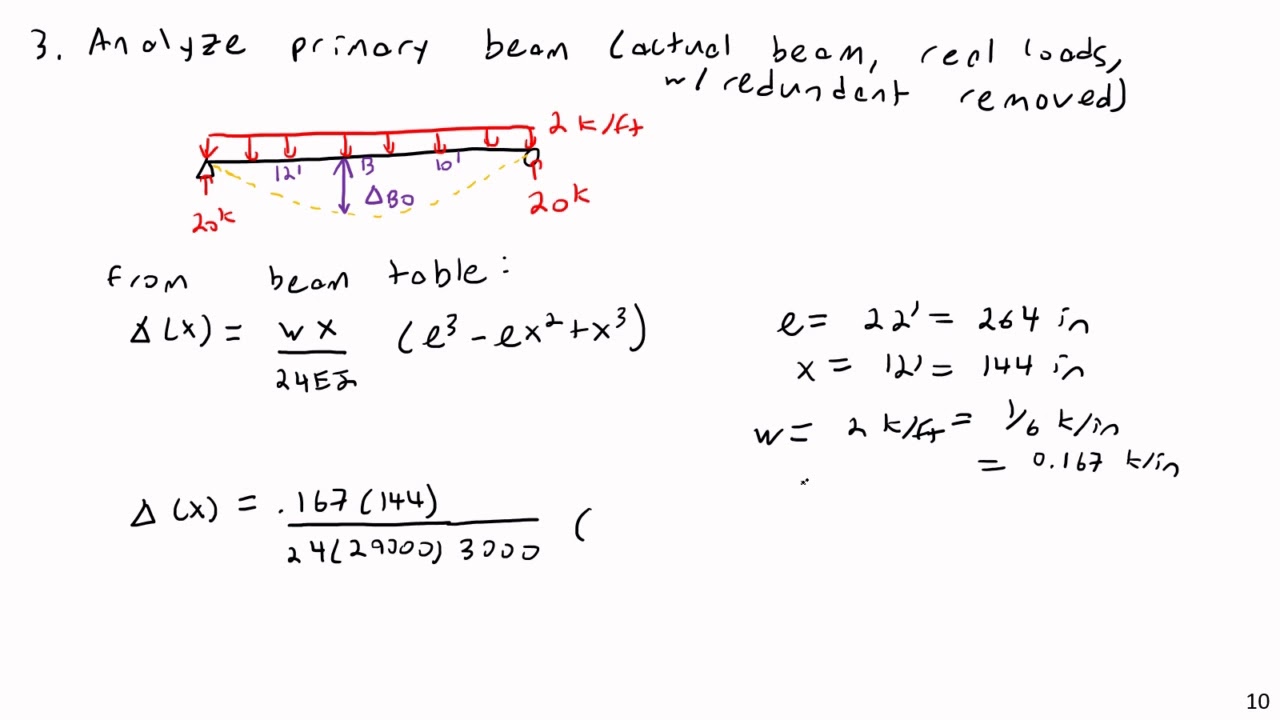 3. Analyze primary beam (actual beam, real loads,
w/ redundent removed)
2 k/ft
12' B 10'
ΔB0
20k
20k
from beam table:
Δ(x) = wx/24EI (l³ - lx² + x³)
l = 22' = 264 in
x = 12' = 144 in
w = 2 k/ft = 1/6 k/in
= 0.167 k/in
Δ(x) = .167(144)/24(29000)3000 (
10